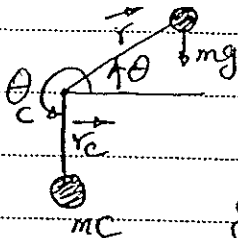 r
mg
θ
θc
rc
mC